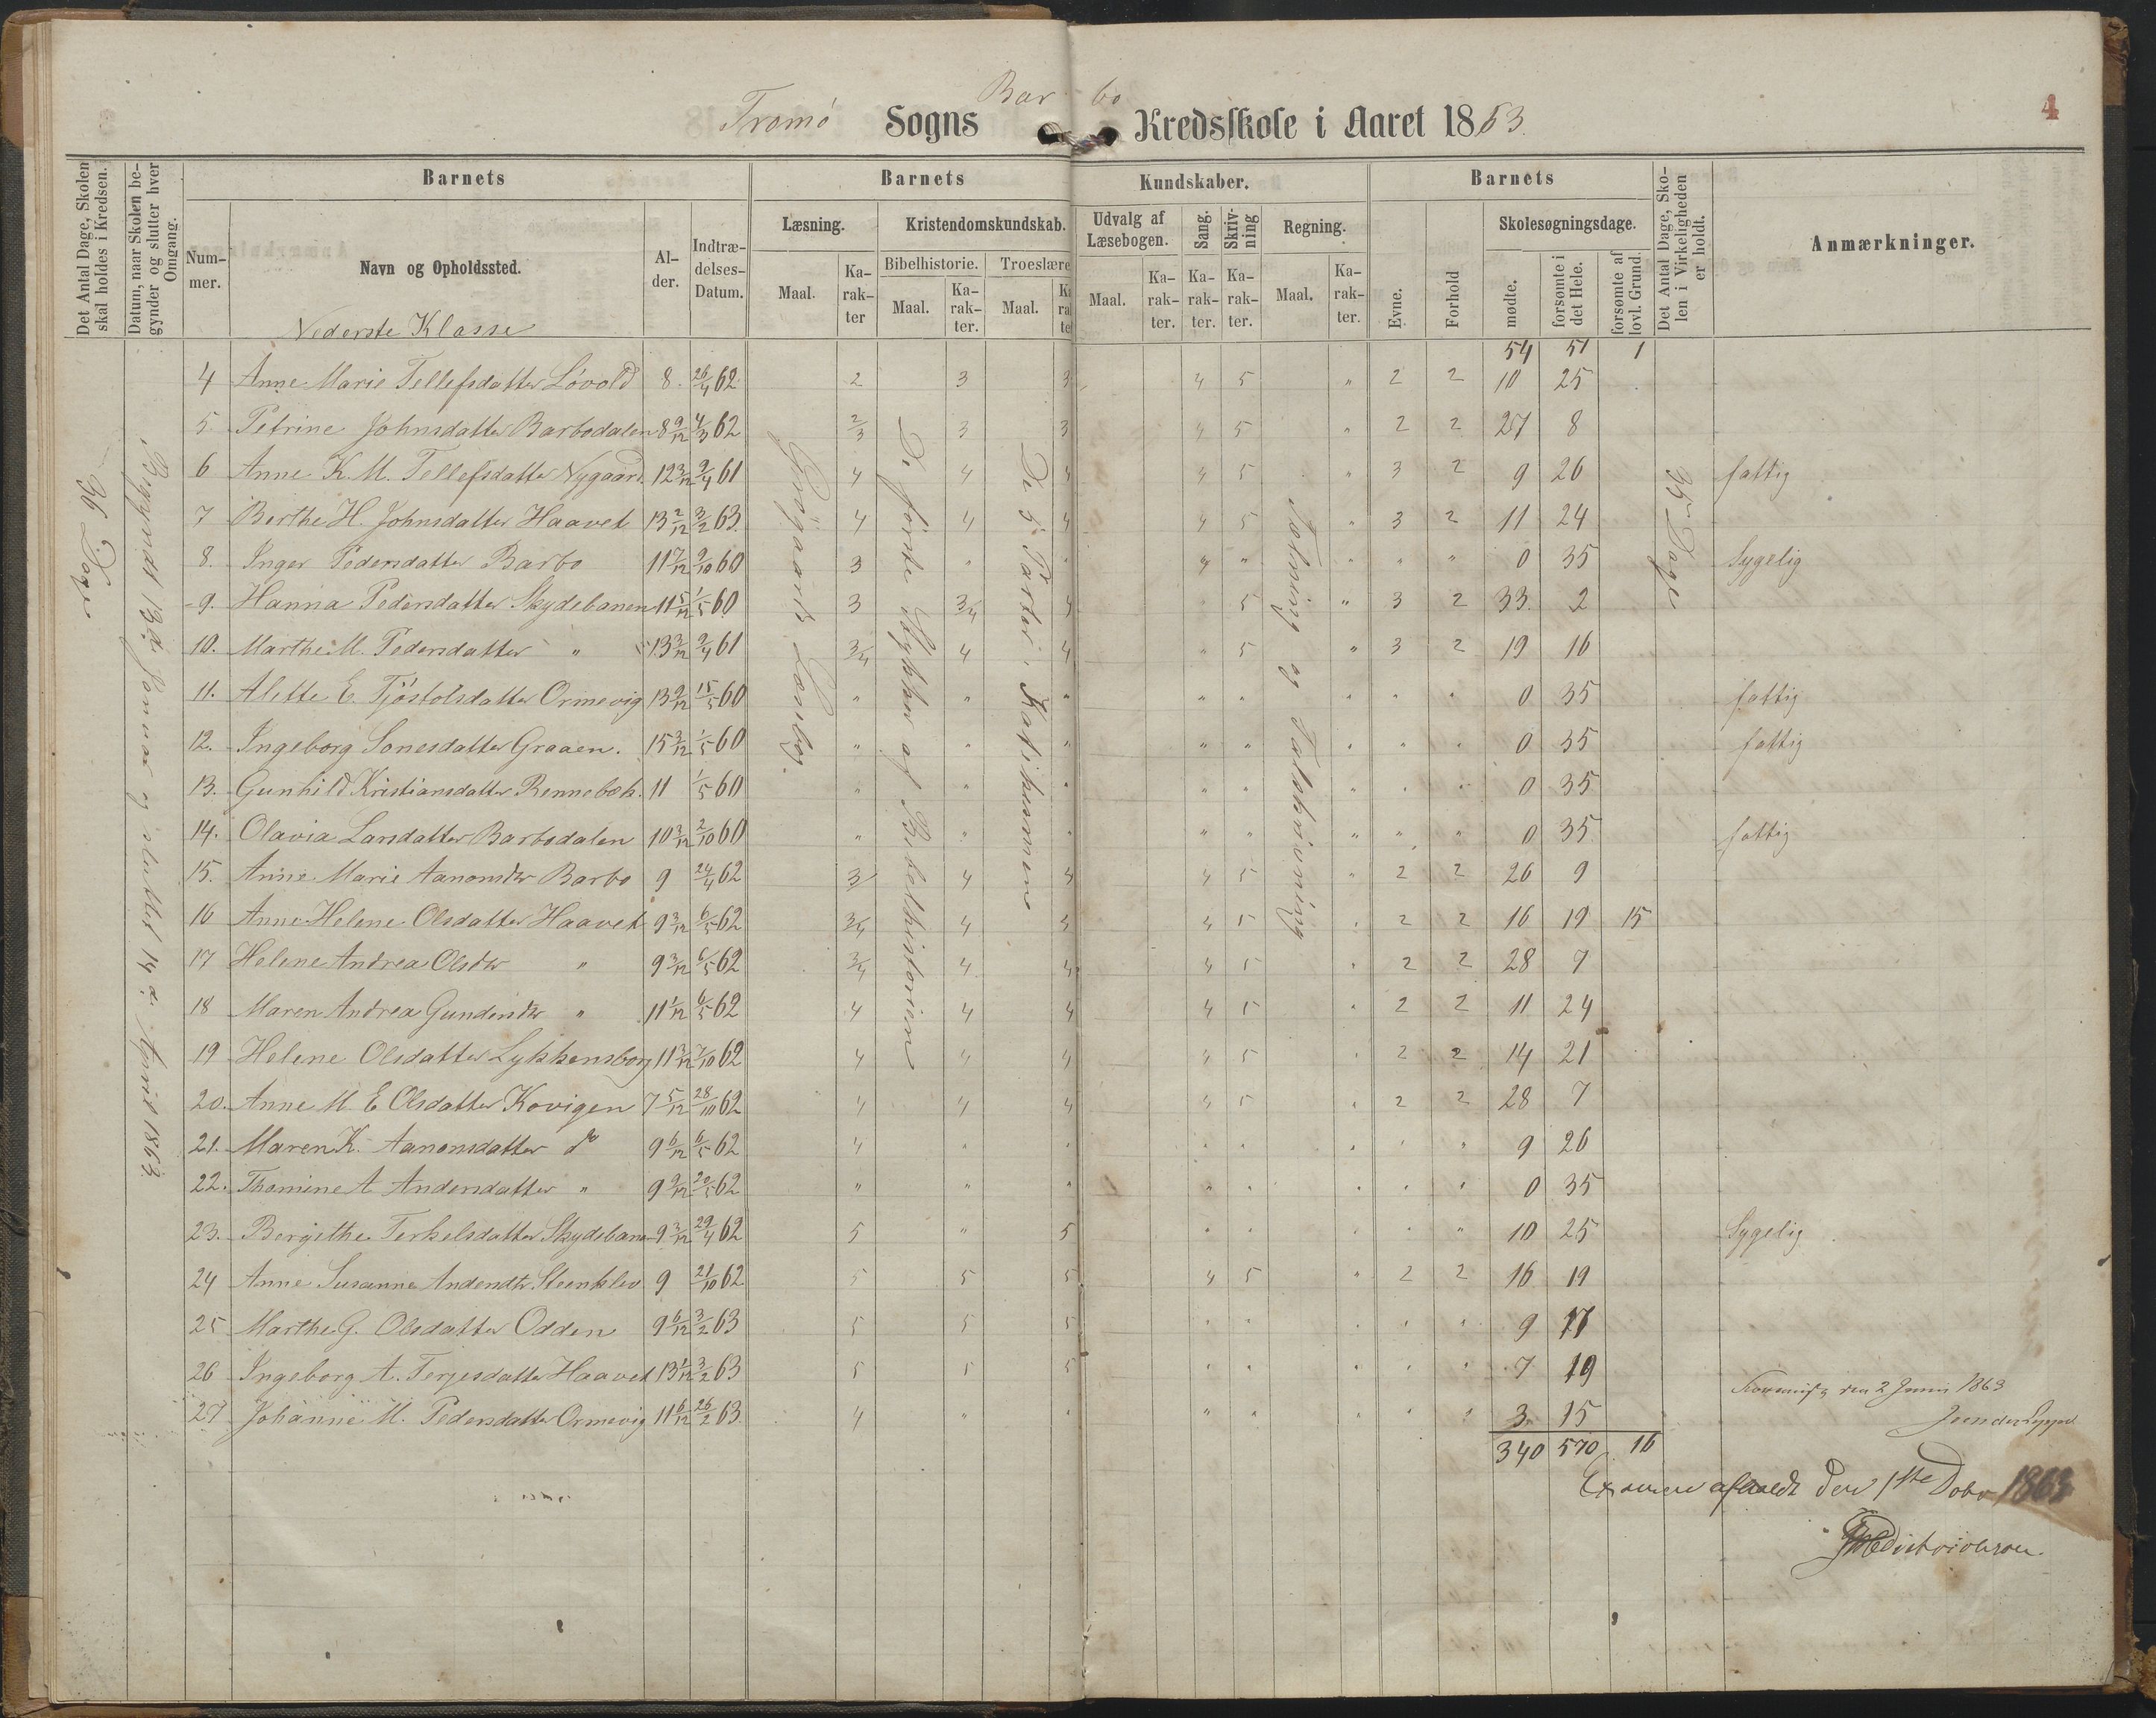 Bar bo
Tromø Sogns Kredsskole i Aaret 1863.
4
Det Antal Dage, Skolen skal holdes i Kredsen.
Datum, naar Skolen begynder og slutter hver Omgang.
Barnets
Nummer.
Navn og Opholdssted.
Alder.
Indtrædelses-Datum.
Barnets Kundskaber.
Læsning.
Maal.
Karakter
Kristendomskundskab.
Bibelhistorie.
Maal.
Karakter.
Troeslære
Maal.
Udvalg af Læsebogen.
Maal.
Karakter.
Sang.
Karakter.
Skrivning
Karakter.
Regning.
Maal.
Karakter.
Barnets
Evne.
Forhold
Skolesøgningsdage.
mødte.
forsømte i det Hele.
forsømte af lovl. Grund.
Det Antal Dage, Skolen i Virkeligheden er holdt.
Anmærkninger.
Nederste Klasse
54 51 1
4 Anne Marie Tellefsdatter Løvold 8. 26/4 62 2 3 3 4 5 " 2 2 10 25
5. Petrine Johnsdatter Barbodalen 8 9/12 4/3 62 2/3 3 3 4 5 " 2 2 27 8
6 Anne K. M. Tellefsdatter Nygaard 12 3/12 9/4 61 4 4 4 4 5 " 3 2 9 26 fattig
7 Berthe H. Johnsdatter Haavet 13 2/12 3/2 63. 4 4 4 4 5 " 3 2 11 24
8. Inger Pedersdatter Barbo 11 7/12 9/10 60 3 " " 4 " " " " 0 35 Sygelig
9. Hanna Pedersdatter Skydebanen 11 5/12 1/5 60 3 3/4 4 5 " 3 2 33. 2
10. Marthe M. Pedersdatter " 13 3/12 9/4 61 3/4 4 4 " 5 " 3 2 19 16
11. Alette E. Tjøstolsdatter Ormevig 13 9/12 15/5 60 " " " " " " " " 0 35 fattig
12. Ingeborg Sonesdatter Graaen. 15 3/12 1/5 60 " " " " " " " " 0 35 fattig
13. Gunhild Kristiansdatter Rennebæk. 11 1/5 60 " " " " " " " " 0 35
14. Olavia Larsdatter Barbodalen 10 3/12 2/10 60 " " " " " " " " 0 35 fattig
15. Anne Marie Aanonsdtr Barbo 9 24/4 62 3 4 4 4 5 " 2 2 26 9
16 Anne Helene Olsdatter Haavet 9 3/12 6/5 62 3/4 4 4 4 5 " 2 2 16 19 15
17 Helene Andrea Olsdtr " 9 3/12 6/5 62 3/4 4 4 4 5 " 2 2 28 7
18 Maren Andrea Gundersdtr " 11 1/12 6/5 62 4 4 4 4 5 " 2 2 11 24
19 Helene Olsdatter Lykkensborg 11 3/12 7/10 62 4 4 4 4 5 " 2 2 14 21
20. Anne M. E Olsdatter Kovigen 7 5/12 28/10 62 4 4 4 4 5 " 2 2 28 7
21. Maren K. Aanonsdatter do 9 6/12 6/5 62 4 " " " " " " " 9 26
22. Thomine A Andersdatter " 9 9/12 20/5 62 " " " " " " " " 0 35
23. Bergithe Terkelsdatter Skydebanen 9 3/12 29/4 62 5 " 5 " " " " " 10 25 Sygelig
24 Anne Susanne Andersdtr. Steenklev 9 21/10 62 5 5 5 4 5 " 2 2 16 19
25 Marthe G. Olsdatter Odden 9 6/12 3/2 63 5 5 5 " " " " " 9 17
26 Ingeborg A. Terjesdatter Haavet 13 1/12 3/2 63 5 5 5 " " " " " 7 19
27 Johanne M. Pedersdatter Ormevig 11 6/12 26/2 63. 4 " " " " " " " 3. 15
340 570 16
36 Dage
Begyndt 13de Januar og sluttet 14de April 1863
Grøgaards Læsebog.
De første Stykker af Bibelhistorien
De 5 Parter i Katekismen
Tælning og Talskrivning
35 Dage
den 2 Juni 1863
Examen afholdt den 1ste 1863